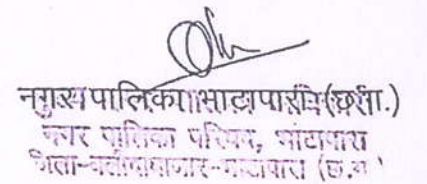 नगर पालिका भाटापारा (छ.ग.)
नगर पालिका परिषद, भाटापारा
जिला-बलौदाबाजार-भाटापारा (छ.ग.)